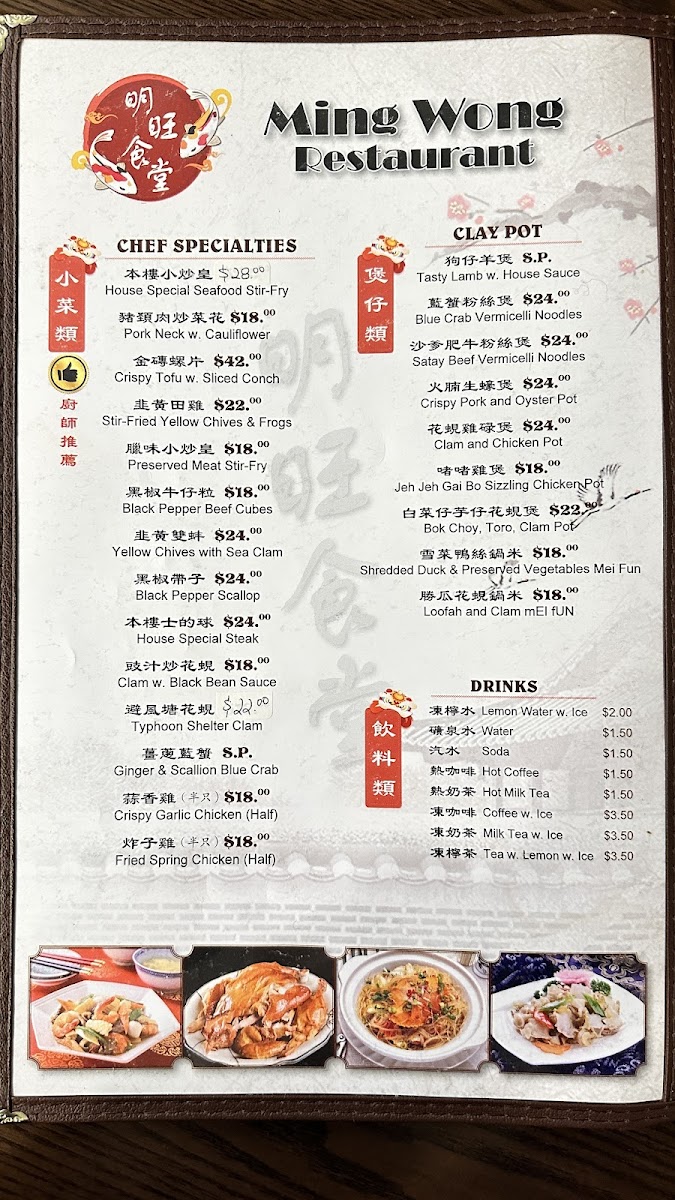 明旺食堂
Ming Wong
Restaurant
小菜類
廚師推薦
CHEF SPECIALTIES
本樓小炒皇 $28.00
House Special Seafood Stir-Fry
豬頸肉炒菜花 $18.00
Pork Neck w. Cauliflower
金磚螺片 $42.00
Crispy Tofu w. Sliced Conch
韭黃田雞 $22.00
Stir-Fried Yellow Chives & Frogs
臘味小炒皇 $18.00
Preserved Meat Stir-Fry
黑椒牛仔粒 $18.00
Black Pepper Beef Cubes
韭黃雙蚌 $24.00
Yellow Chives with Sea Clam
黑椒帶子 $24.00
Black Pepper Scallop
本樓士的球 $24.00
House Special Steak
豉汁炒花蜆 $18.00
Clam w. Black Bean Sauce
避風塘花蜆 $22.00
Typhoon Shelter Clam
薑蔥藍蟹 S.P.
Ginger & Scallion Blue Crab
蒜香雞(半只) $18.00
Crispy Garlic Chicken (Half)
炸子雞(半只) $18.00
Fried Spring Chicken (Half)
煲仔類
CLAY POT
狗仔羊煲 S.P.
Tasty Lamb w. House Sauce
藍蟹粉絲煲 $24.00
Blue Crab Vermicelli Noodles
沙爹肥牛粉絲煲 $24.00
Satay Beef Vermicelli Noodles
火腩生蠔煲 $24.00
Crispy Pork and Oyster Pot
花蜆雞碌煲 $24.00
Clam and Chicken Pot
啫啫雞煲 $18.00
Jeh Jeh Gai Bo Sizzling Chicken Pot
白菜仔芋仔花蜆煲 $22.00
Bok Choy, Toro, Clam Pot
雪菜鴨絲鍋米 $18.00
Shredded Duck & Preserved Vegetables Mei Fun
勝瓜花蜆鍋米 $18.00
Loofah and Clam mEI fUN
飲料類
DRINKS
凍檸水 Lemon Water w. Ice $2.00
礦泉水 Water $1.50
汽水 Soda $1.50
熱咖啡 Hot Coffee $1.50
熱奶茶 Hot Milk Tea $1.50
凍咖啡 Coffee w. Ice $3.50
凍奶茶 Milk Tea w. Ice $3.50
凍檸茶 Tea w. Lemon w. Ice $3.50
明旺食堂